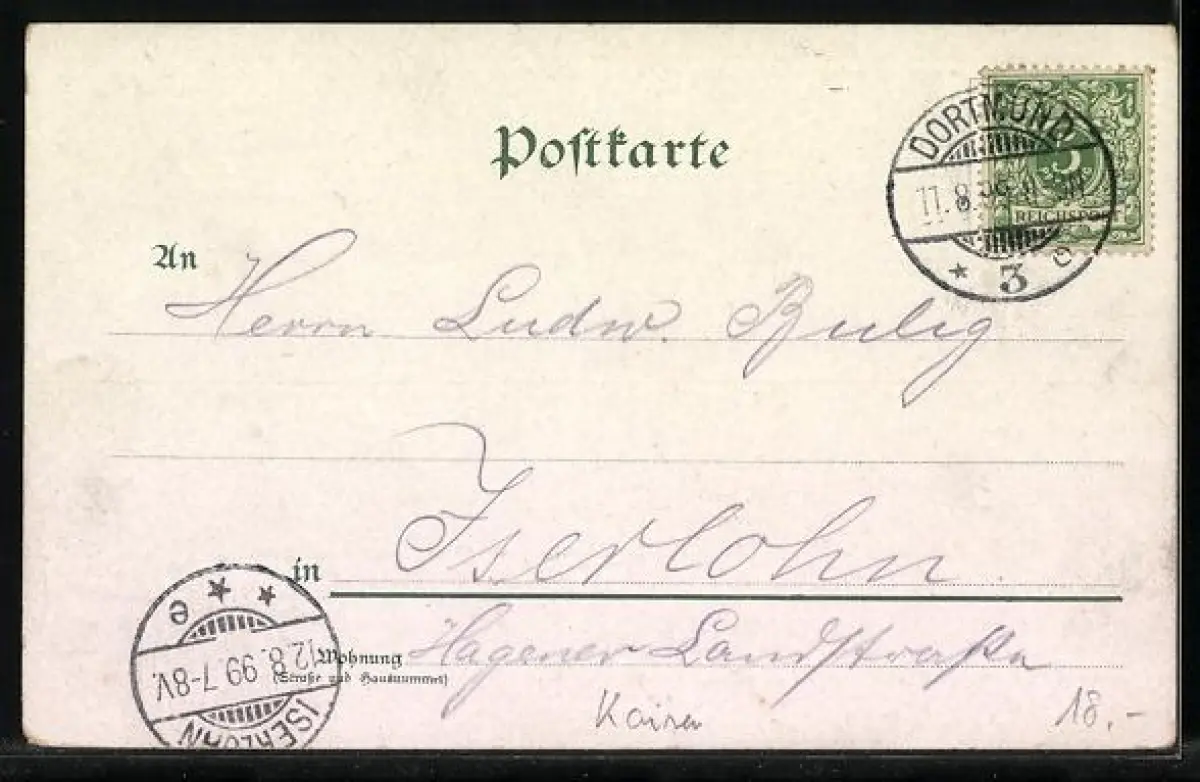 Postkarte
DORTMUND
11.8.99
3 c
REICHSPOST
An
Herrn Ludw. Bulig
in Iserlohn.
Wohnung
(Straße und Hausnummer)
Hagener Landstraße
e
12.8.99 7-8V.
ISERLOHN
18.-